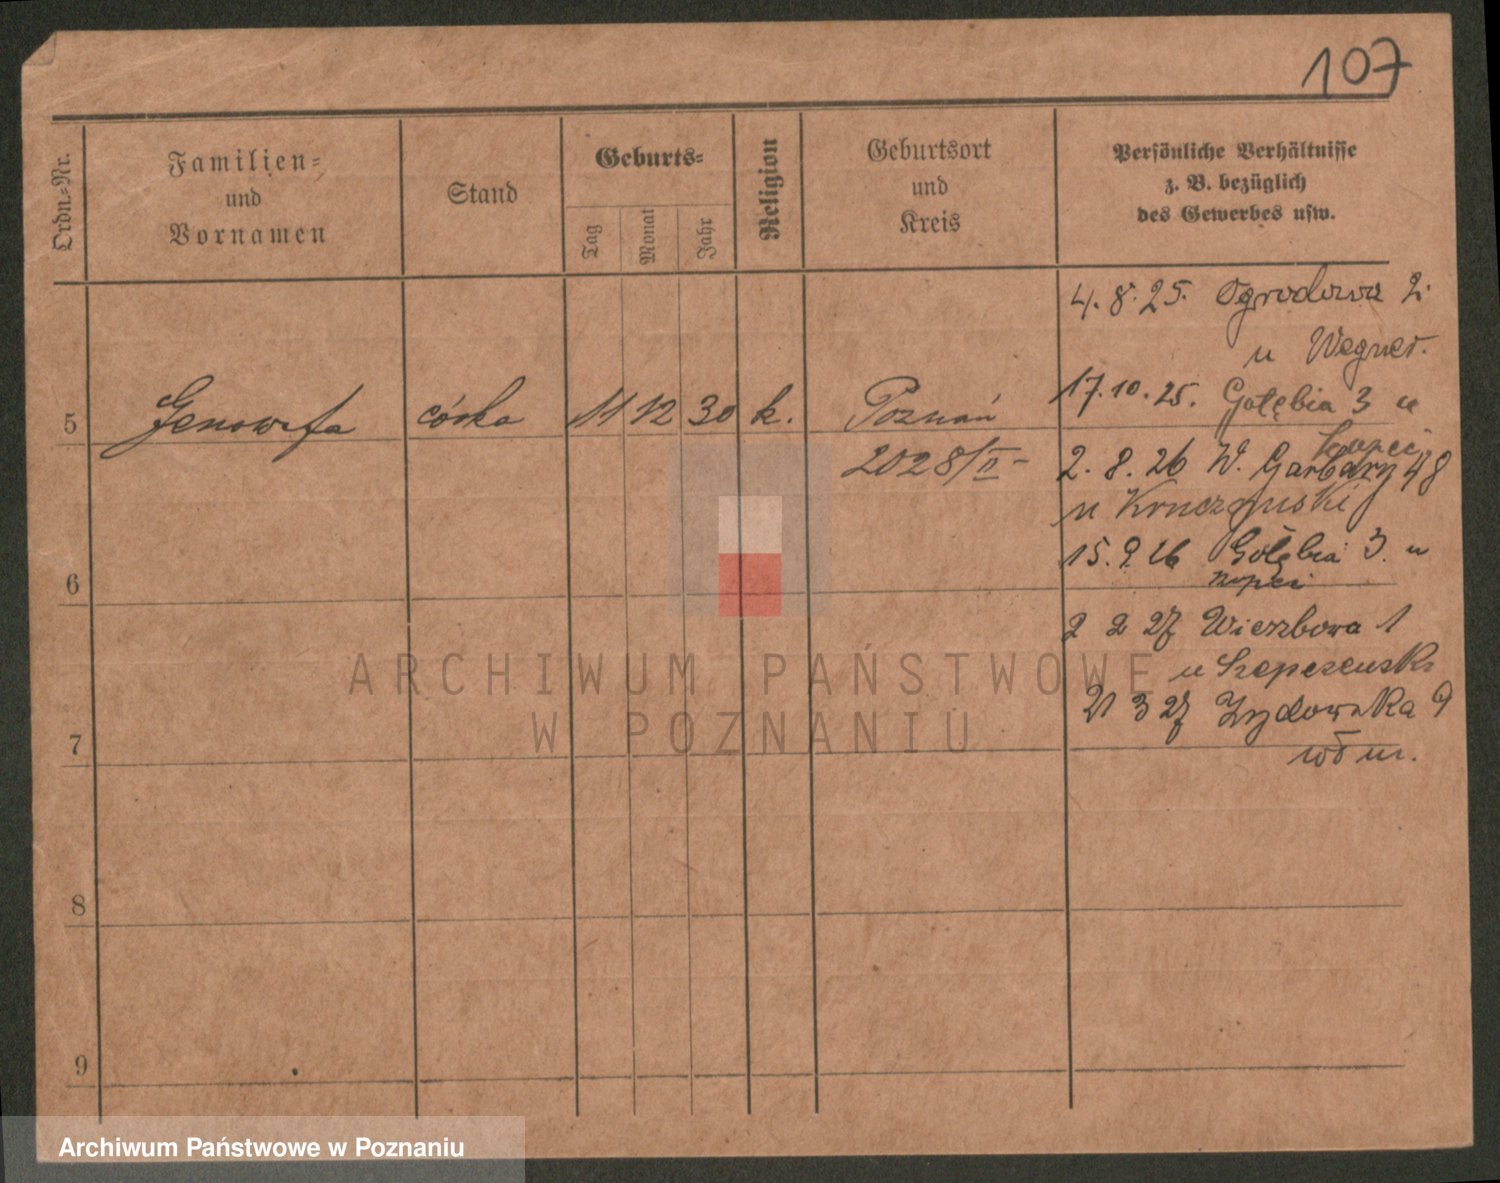 107
Ordn.-Nr.
Familien-
und
Vornamen
Stand
Geburts-
Tag
Monat
Jahr
Religion
Geburtsort
und
Kreis
Persönliche Verhältnisse
z. B. bezüglich
des Gewerbes usw.
4. 8. 25. Ogrodowa 2.
u Wegner.
17. 10. 25. Gołębia 3 u
5 Genowefa córka 11 12 30 k. Poznań
2028/II -
2. 8. 26 W. Garbary 48
u
15. 9. 26 Gołębia 3. u
6
2 2 27 Wierzbowa 1
u
21 3 27 Żydowska 9
7
8
9
ARCHIWUM PAŃSTWOWE
W POZNANIU
Archiwum Państwowe w Poznaniu